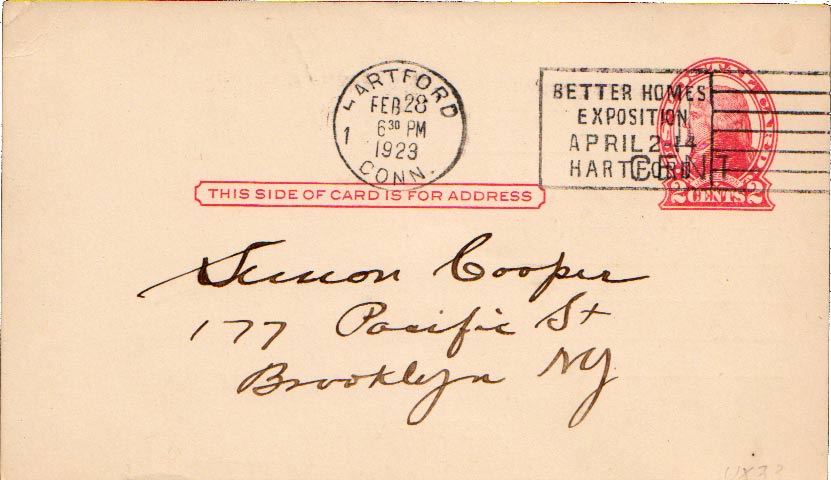 HARTFORD
FEB 28
6 30 PM
1
1923
CONN.
BETTER HOMES
EXPOSITION
APRIL 2-14
HARTFORD
CENT
2 CENTS 2
THIS SIDE OF CARD IS FOR ADDRESS
Simon Cooper
177 Pacific St
Brooklyn NY